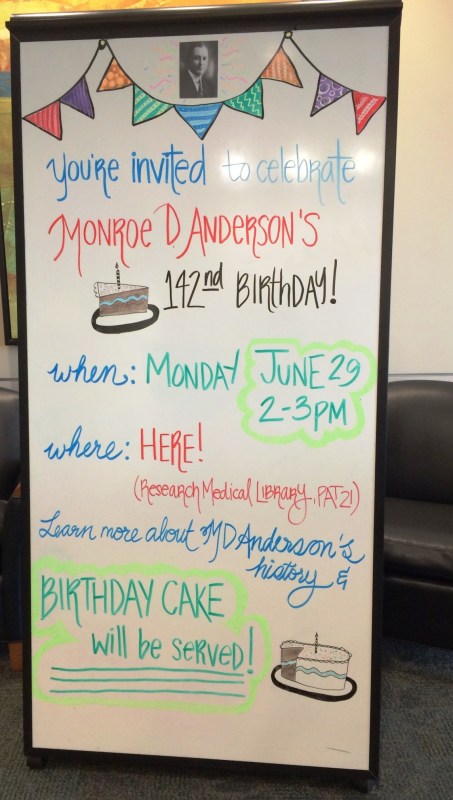 You're invited to celebrate
MONROE D ANDERSON'S
142nd BIRTHDAY!
when: MONDAY JUNE 29
2-3PM
where: HERE!
(Research Medical LIBRARY, PAT21)
Learn more about MD Anderson's
history &
BIRTHDAY CAKE
will be served!